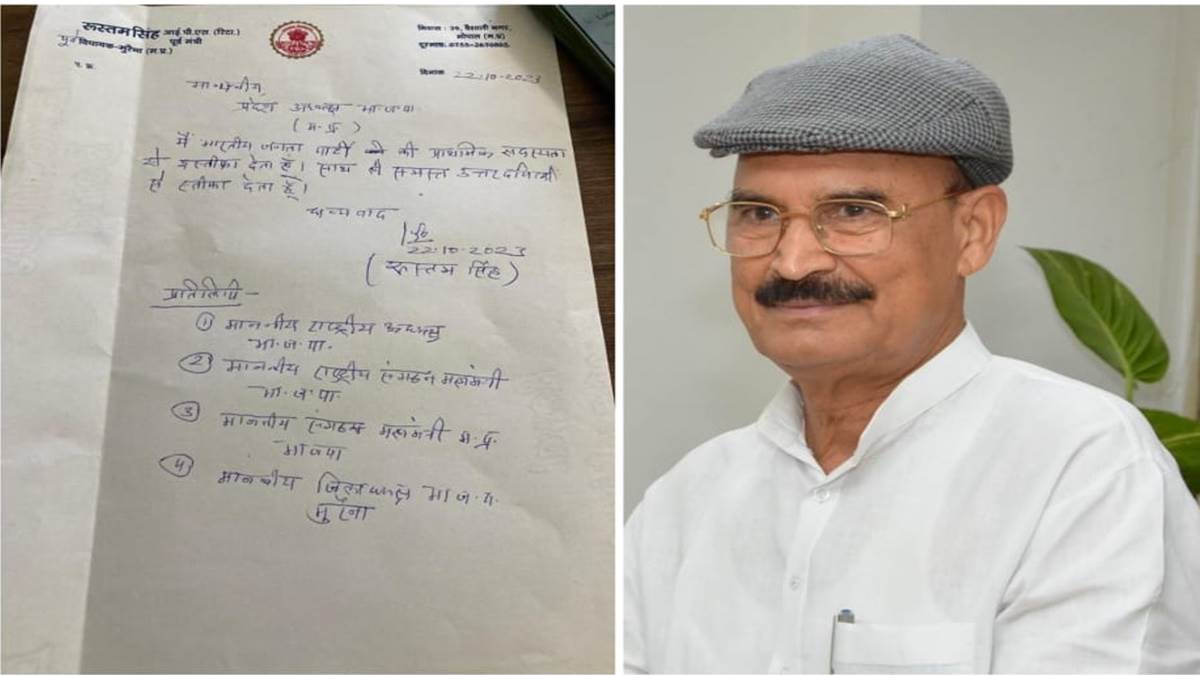 रूस्तम सिंह आई.पी.एस. (रिटा.)
पूर्व मंत्री
पूर्व विधायक-मुरैना (म.प्र.)
निवास : 29, वैशाली नगर,
भोपाल (म.प्र)
दूरभाष: 0755-2670605
प.क्र.
दिनांक 22.10.2023
माननीय,
प्रदेश अध्यक्ष भा.ज.पा.
(म.प्र.)
मैं भारतीय जनता पार्टी की प्राथमिक सदस्यता
से इस्तीफा देता हूँ। साथ ही समस्त
से स्तीफा देता हूँ।
धन्यवाद
22.10.2023
(रूस्तम सिंह)
प्रतिलिपी -
① माननीय राष्ट्रीय अध्यक्ष
भा.ज.पा.
② माननीय राष्ट्रीय संगठन महामंत्री
भा.ज.पा.
③ माननीय संगठन महामंत्री म.प्र.
भाजपा
④ माननीय जिलाध्यक्ष भा.ज.पा.
मुरैना